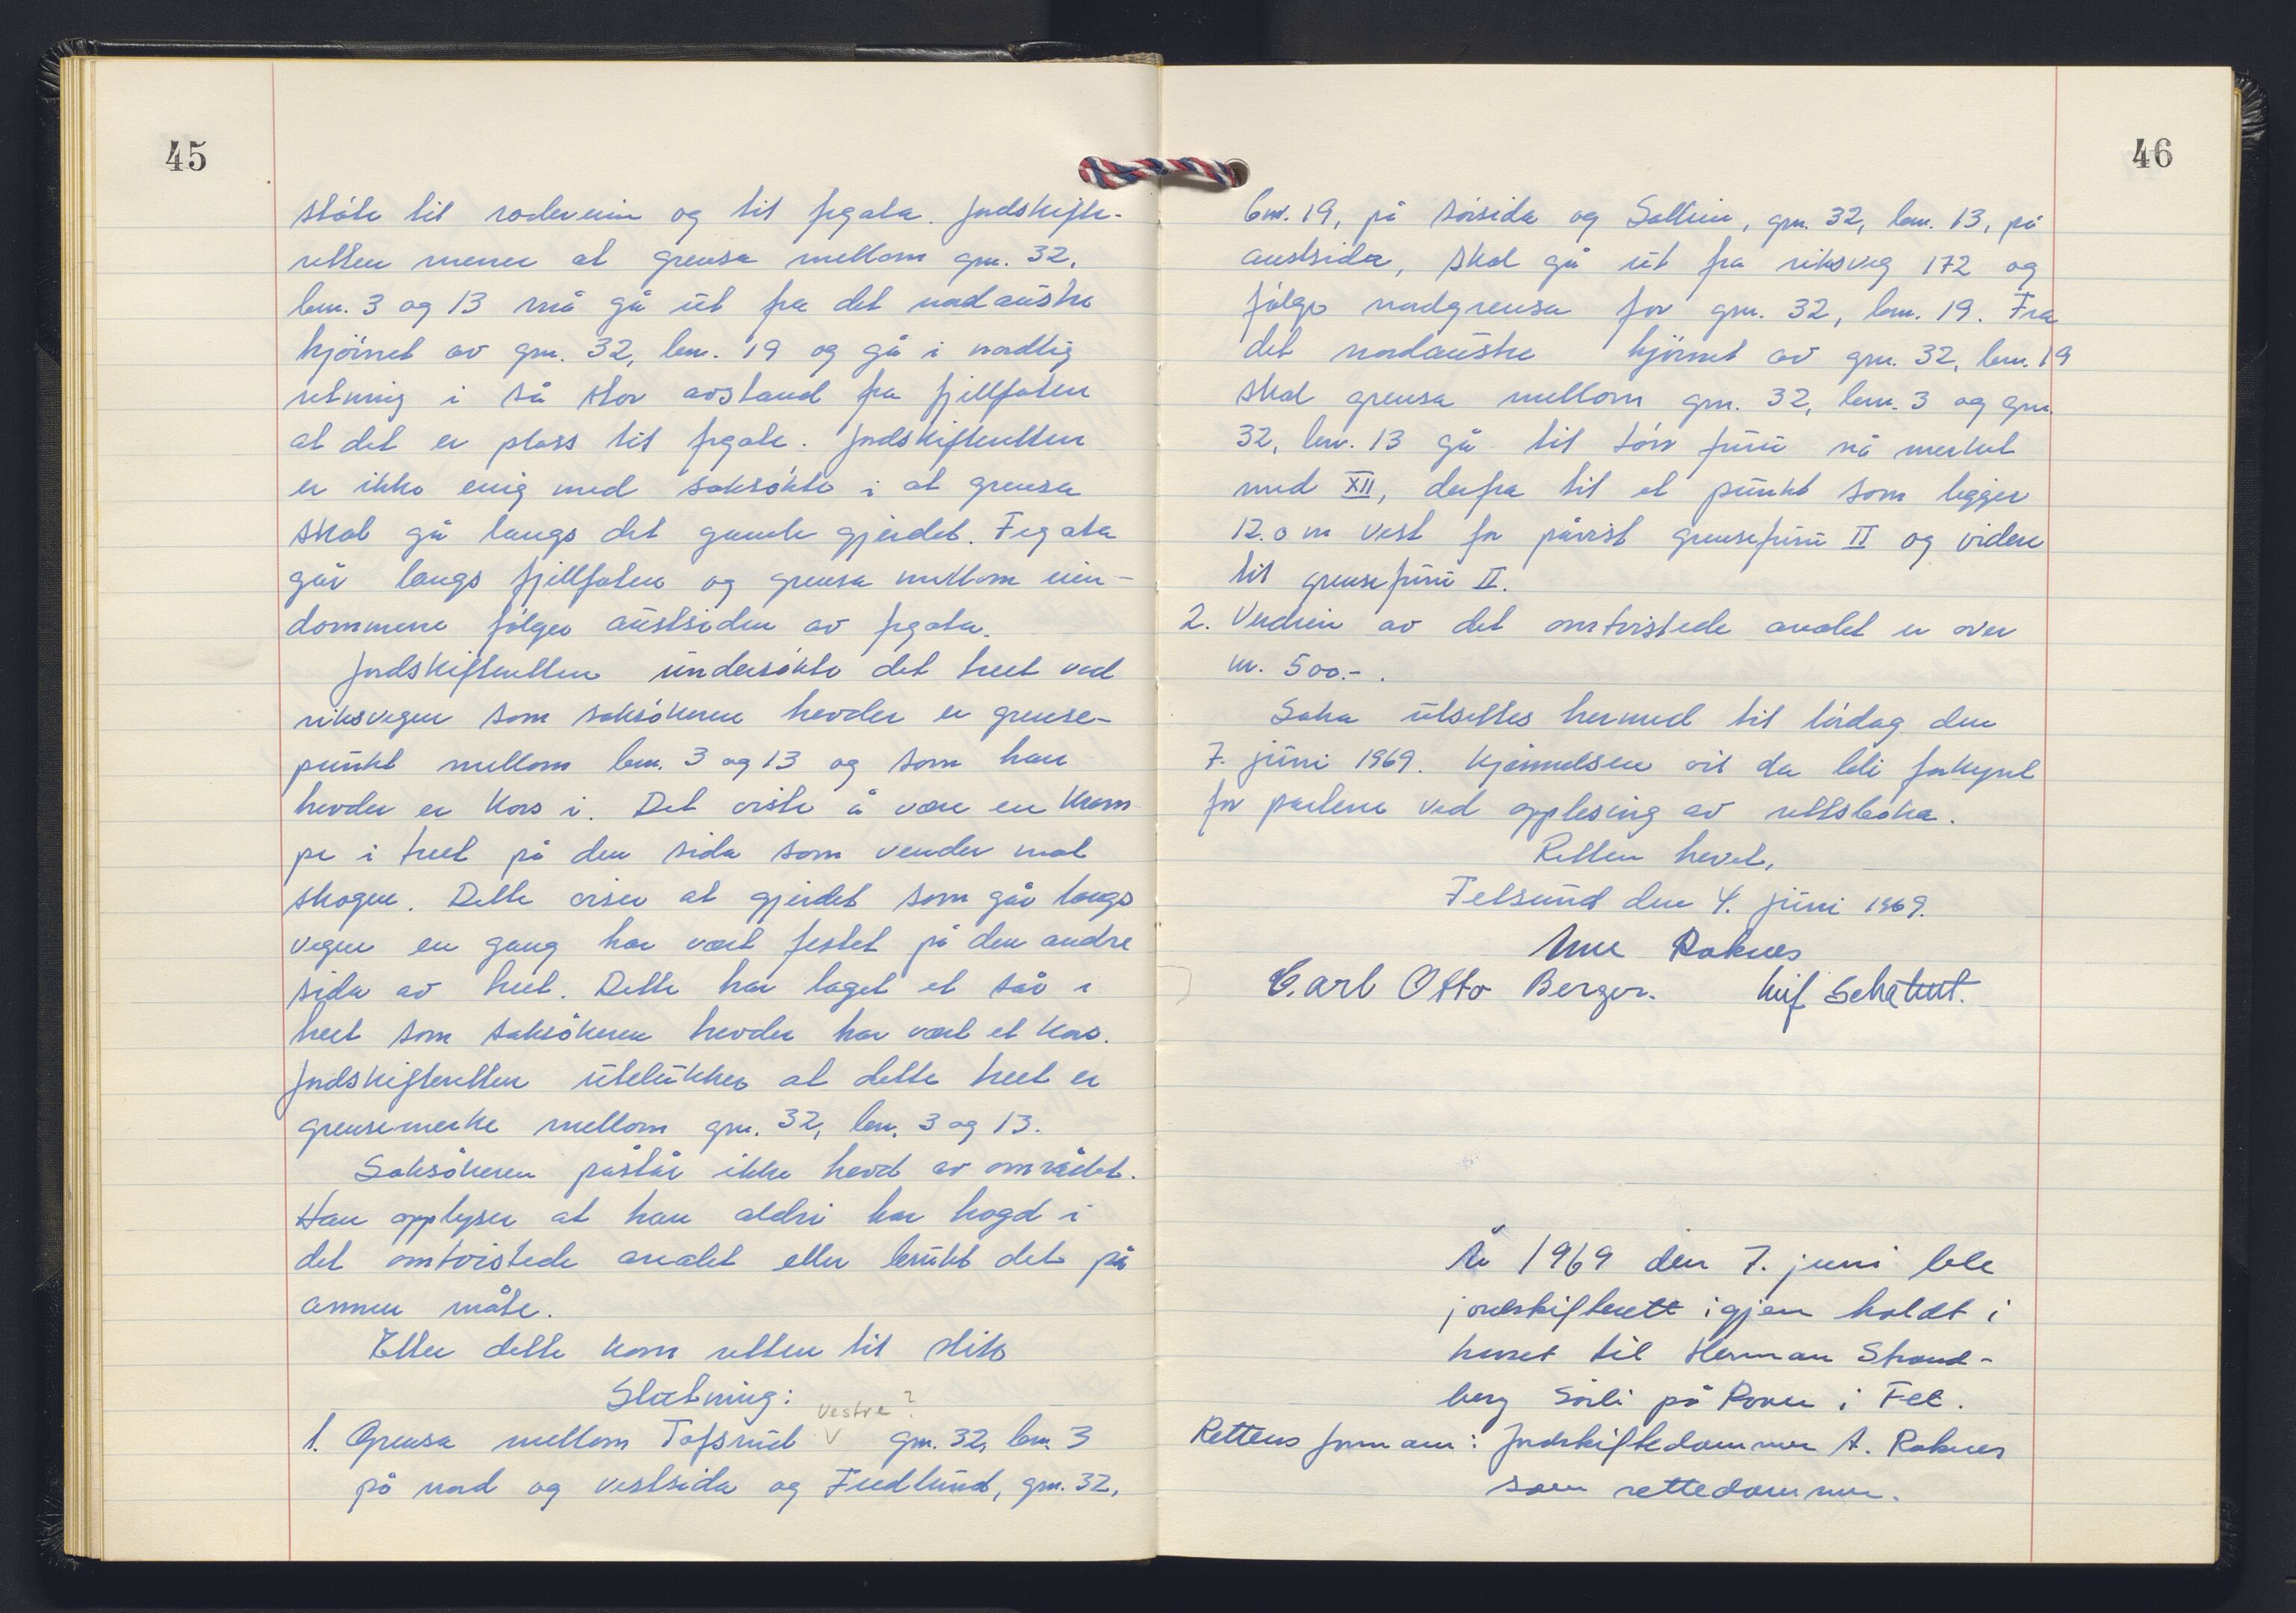 45
støte til rodeveien og til fegata. Jordskifte-
retten mener at grensa mellom gnr. 32,
bnr. 3 og 13 må gå ut fra det nordaustre
hjørnet av gnr. 32, bnr. 19 og gå i nordlig
retning i så stor avstand fra fjellfoten
at det er plass til fegate. Jordskifteretten
er ikke enig med saksøkte i at grensa
skal gå langs det gamle gjerdet. Fegata
går langs fjellfoten og grensa mellom eien-
dommene følger austsiden av fegata.
Jordskifteretten undersøkte det treet ved
riksvegen som saksøkeren hevder er grense-
punkt mellom bnr. 3 og 13 og som han
hevder er kors i. Det viste å være en kram-
pe i treet på den sida som vender mot
skogen. Dette viser at gjerdet som går langs
vegen en gang har vært festet på den andre
sida av treet. Dette har laget et sår i
treet som saksøkeren hevder har vært et kors.
Jordskifteretten utelukker at dette treet er
grensemerke mellom gnr. 32, bnr. 3 og 13.
Saksøkeren påstår ikke hevd av området.
Han opplyser at han aldri har hogd i
det omtvistede arealet eller brukt det på
annen måte.
Etter dette kom retten til slik
Slutning:
vestre?
1. Grensa mellom Tofsrud V gnr. 32, bnr. 3
på nord og vestsida og Fredlund, gnr. 32,
46
bnr. 19, på sørsida og Solheim, gnr. 32, bnr. 13, på
austsida, skal gå ut fra riksveg 172 og
følge nordgrensa for gnr. 32, bnr. 19. Fra
det nordaustre hjørnet av gnr. 32, bnr. 19
skal grensa mellom gnr. 32, bnr. 3 og gnr.
32, bnr. 13 gå til tørr furu nå merket
med XII, derfra til et punkt som ligger
12.0 m vest for påvist grensefuru II og videre
til grensefuru II.
2. Verdien av det omtvistede arealet er over
kr. 500.-.
Saka utsettes hermed til lørdag den
7. juni 1969. Kjennelsen vil da bli forkynt
for partene ved opplesing av rettsboka.
Retten hevet,
Fetsund den 4. juni 1969.
Arne Raknes
Carl Otto Berger. Leif
År 1969 den 7. juni ble
jordskifterett igjen holdt i
huset til Herman Strand-
berg Sørli på Roven i Fet.
Rettens formann: Jordskiftedommer A. Raknes
som rettedommer.